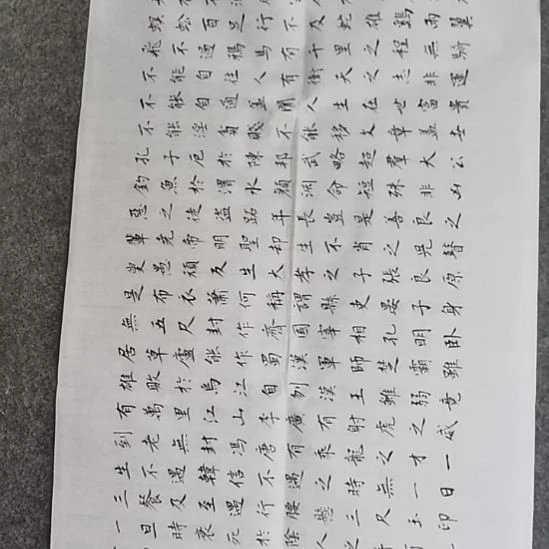 飛不過鴉馬有千里之程無騎
不能自往人有衝天之志非運
不能自通蓋聞人生在世富貴
不能淫貧賤不能移文章蓋世
孔子厄於陳邦武略超羣太公
釣魚於渭水顏淵命短殊非
惡之徒盜跖年長豈是善良之
輩堯帝明聖却生不肖之兒瞽
叟愚頑反生大孝之子張良原
是布衣蕭何稱謂縣吏晏子身
無五尺封作齊國宰相孔明臥
居草廬能作蜀漢軍師楚霸雖
雄敗於烏江自刎漢王雖弱竟
有萬里江山李廣有射虎之威
到老無封馮唐有乘龍之才一
生不遇韓信遇之時無一日
三餐及至遇行腰懸三尺玉印
一旦時衰死於陰人之